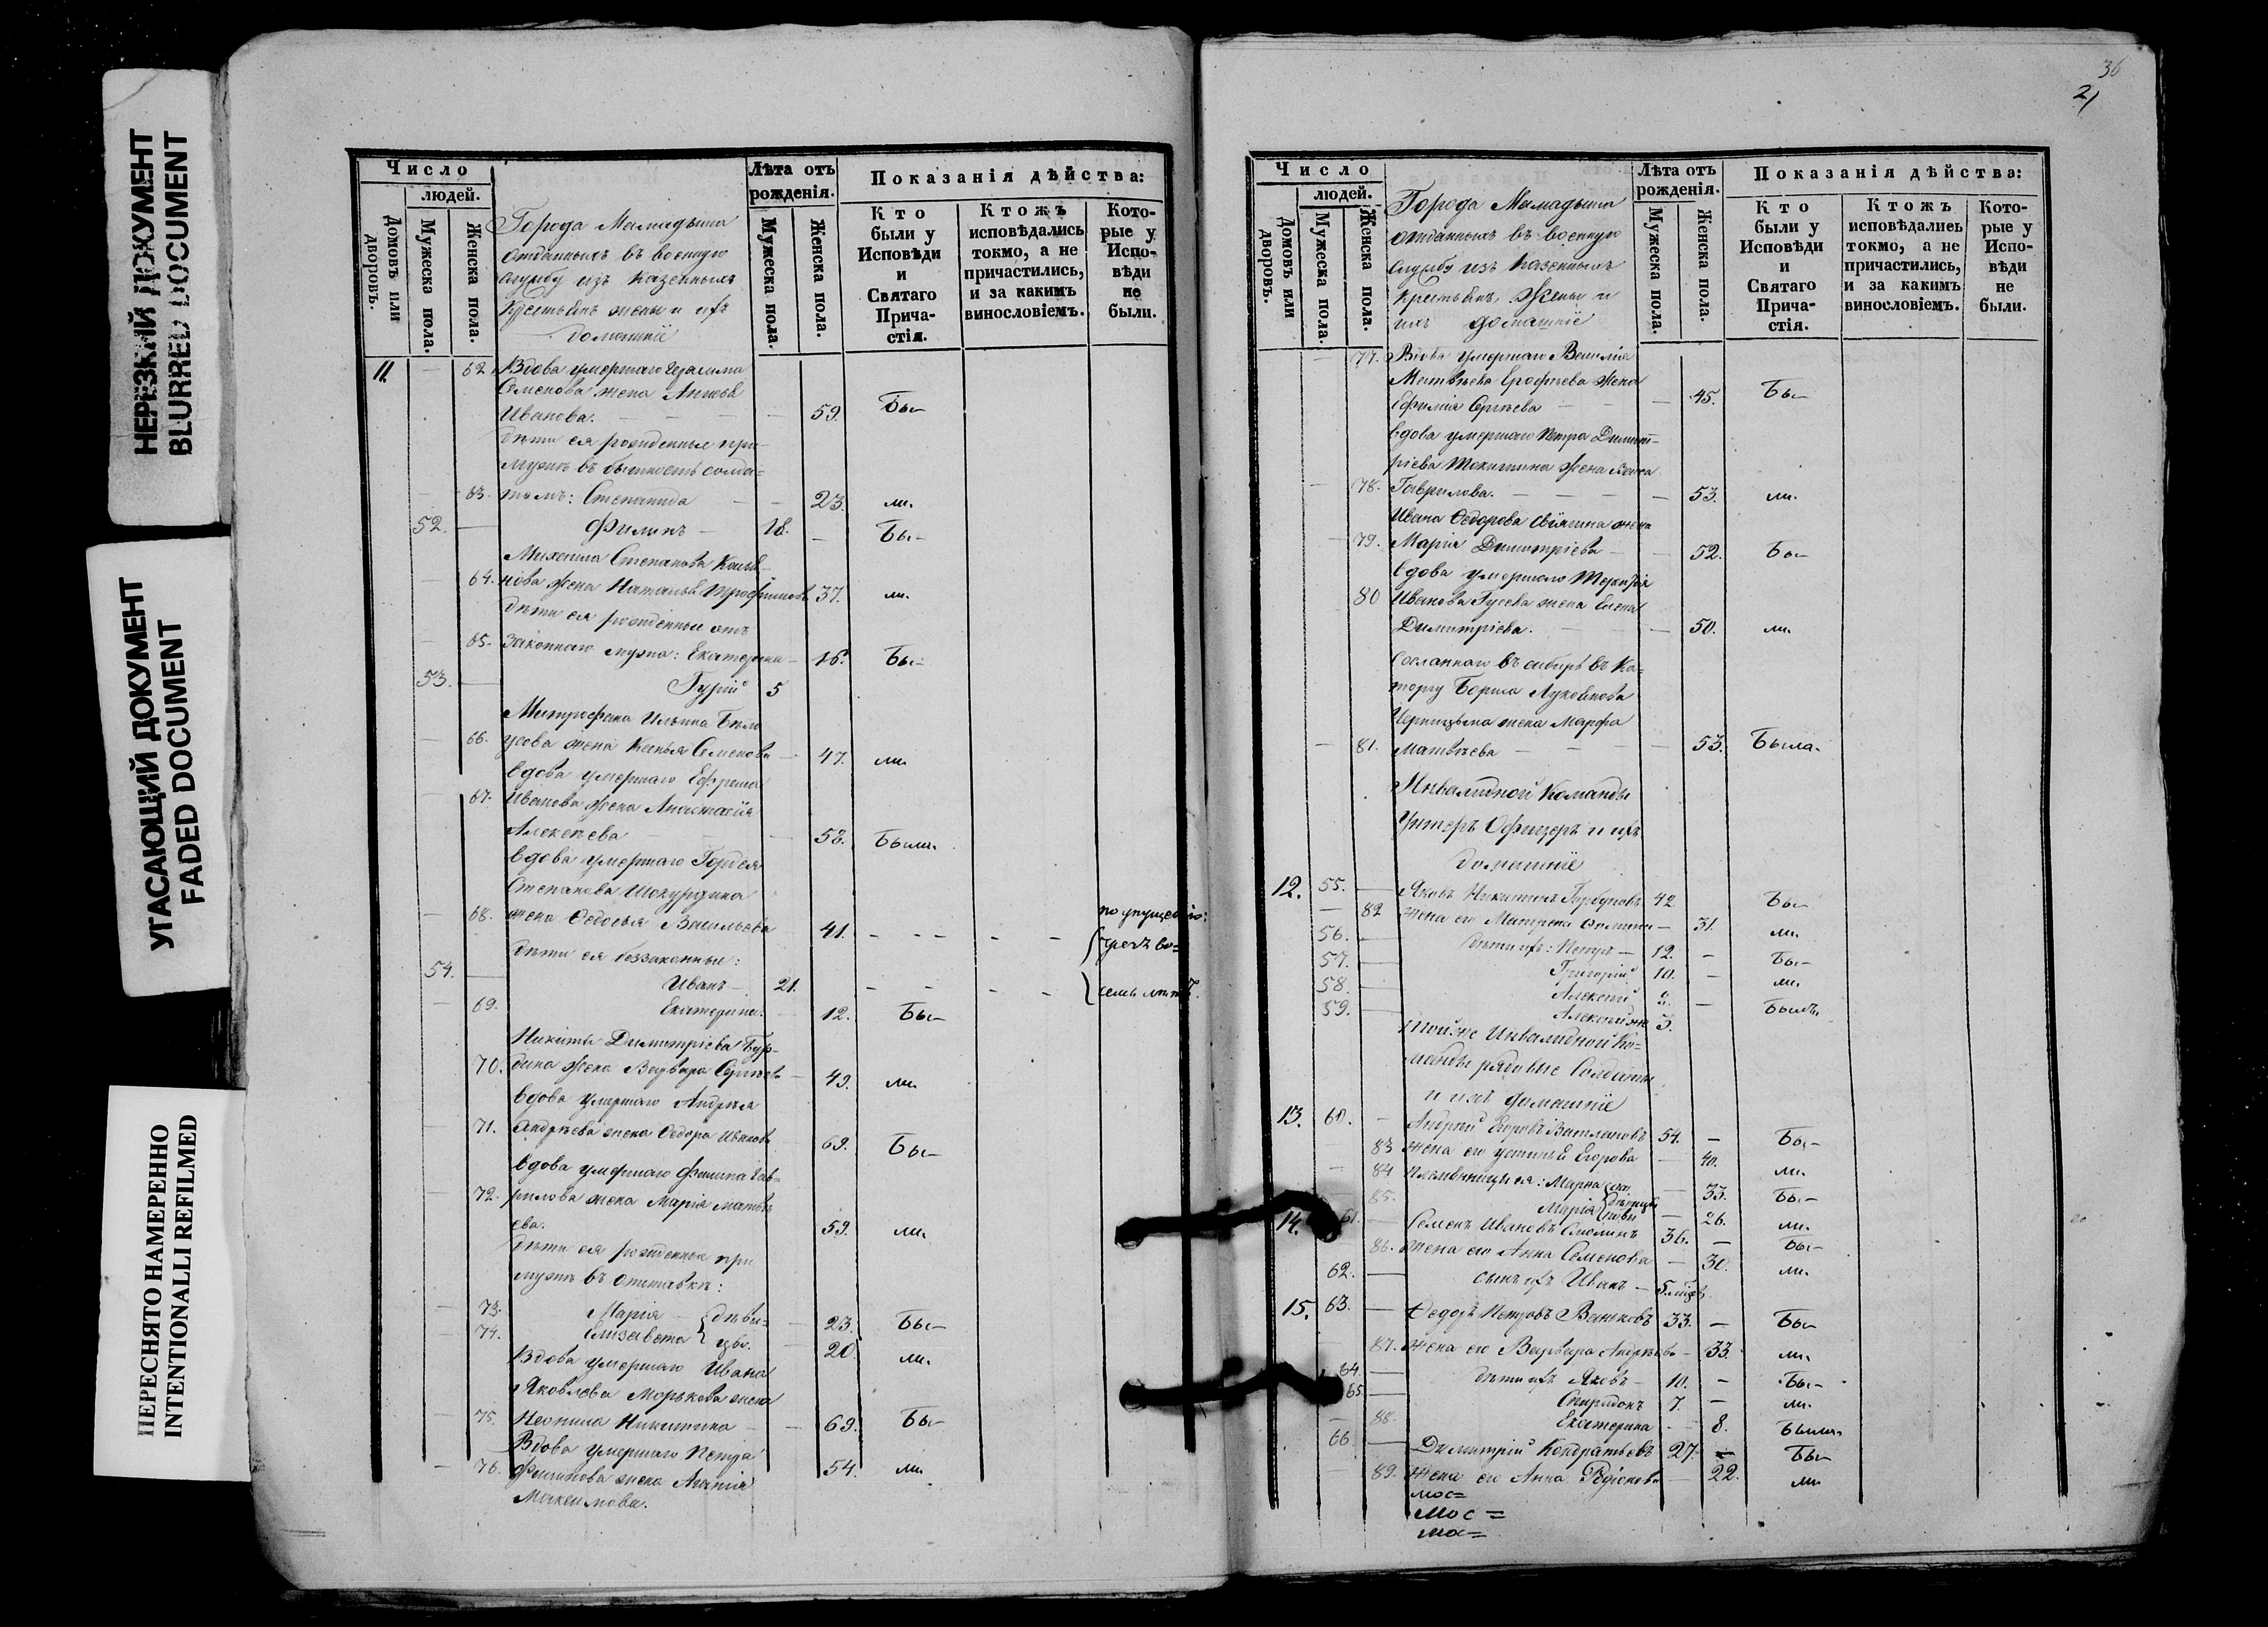 НЕРЕЗКИЙ ДОКУМЕНТ
BLURRED DOCUMENT
УГАСАЮЩИЙ ДОКУМЕНТ
FADED DOCUMENT
ПЕРЕСНЯТО НАМЕРЕННО
INTENTIONALLI REFILMED
Число
людей.
Домовъ или дворовъ.
Мужеска пола.
Женска пола.
Города Мамадыша
отданныхъ въ военную
службу изъ казенныхъ
крестьянъ жены и ихъ
домашніе
Лѣта отъ рожденія.
Мужеска пола.
Женска пола.
Показанія дѣйства:
Кто были у Исповѣди и Святаго Прича-стія.
Ктожъ исповѣдались токмо, а не причастились, и за какимъ винословіемъ.
Кото-рые у Испо-вѣди не были.
11. — 62. Вдова умершаго Герасима
Семенова жена
Иванова. — 59. Бы-
дѣти ея рожденные при
мужѣ въ бытность солда=
— 63. томъ: Степанида — 23. ли.
52. — Филипъ — 18. — Бы-
Михаила Степанова
— 64. нова жена Наталья Трофимова 37. ли.
дѣти ея рожденные отъ
— 65. законнаго мужа: Екатерина — 16. Бы-
53. — Гурій 5
Митрофана Ильина Бѣло
— 66. усова жена Ксенья Семенова — 47. ли.
вдова умершаго Ефрема
— 67. Иванова жена Анастасія
Алексѣева — 53. Были.
вдова умершаго Гордея
Степанова
— 68. жена Федосья Васильева 41. — — — — — по упущенію:
дѣти ея беззаконные:
54. — Иванъ — 21. — — — —
— 69. Екатерина. — 12. Бы-
Никиты Димитріева Бур-
70. дина жена Варвара Сергѣева — 49. ли.
вдова умершаго Андрея
— 71. Андрѣева жена Федора Иванова 69. Бы-
вдова умершаго Филипа Гав-
— 72. рилова жена Марія Матвѣ
ева. 59. ли.
дѣти ея рожденныя при
мужѣ въ отставкѣ:
— 73. Марія — дѣви= — 23. Бы-
— 74. Елизавета цы. — 20. ли.
Вдова умершаго Ивана
Яковлева Морькова жена
— 75. Неонила Никитина — 69. Бы-
Вдова умершаго Петра
— 76. Филипова жена Агапія 54. ли.
Максимова.
36
21
Число
людей.
Домовъ или дворовъ.
Мужеска пола.
Женска пола.
Города Мамадыша
отданныхъ въ военную
службу изъ казенныхъ
крестьянъ, жены и
ихъ домашніе
Лѣта отъ рожденія.
Мужеска пола.
Женска пола.
Показанія дѣйства:
Кто были у Исповѣди и Святаго Прича-стія.
Ктожъ исповѣдались токмо, а не причастились, и за какимъ винословіемъ.
Кото-рые у Испо-вѣди не были.
— 77. Вдова умершаго Василія
Матвѣева Ерофѣева жена
Ефимія Сергѣева — — 45. Бы-
вдова умершаго Петра Димит-
ріева жена
— 78. Гаврилова. — — 53. ли.
Ивана Федорова жена
— 79. Марія Димитріева — — 52. Бы-
вдова умершаго Терентія
80 Иванова Гусева жена Елена
Димитріева. — — 50. ли.
Сосланнаго въ сибирь въ Ка-
торгу Бориса
жена Марфа
— 81. Матвѣева — — 53. Была.
Инвалидной Команды
Унтеръ Офицеръ и ихъ
домашніе
12. 55. — Яковъ Никитинъ Горбуновъ 42. Бы-
— 82 жена его Матрена — 31. ли.
56. — дѣти ихъ: Петръ — 12. — Бы-
57. — Григорій 10. — ли.
58. — Алексѣй 2. — Былъ
59. — Алексѣй же 3.
тойже Инвалидной Ко=
манды рядовые Солдаты
и ихъ домашніе
13. 60. — Андрей Егоровъ 54. — Бы-
83 жена его Устинья Егорова — 40. ли.
84 племянницы ея: Марка — 33. Бы-
— 85. Марія — 26. ли.
14. 61. — Семенъ Ивановъ Смолинъ 36. — Бы-
86. жена его Анна Семенова — 30. ли.
62. — сынъ ихъ Иванъ — 5.
15. 63. — Федоръ Петровъ 33. — Бы-
87. жена его Варвара Андреева — 33. ли.
64. — дѣти ихъ Яковъ 10. — Бы-
65. — Спиридонъ 7. — ли.
— 88. Екатерина — 8. Были.
66 — Димитрій Кондратьевъ 27. — Бы-
89. жена его Анна Родіонова — 22. ли
мос=
мос=
мо=